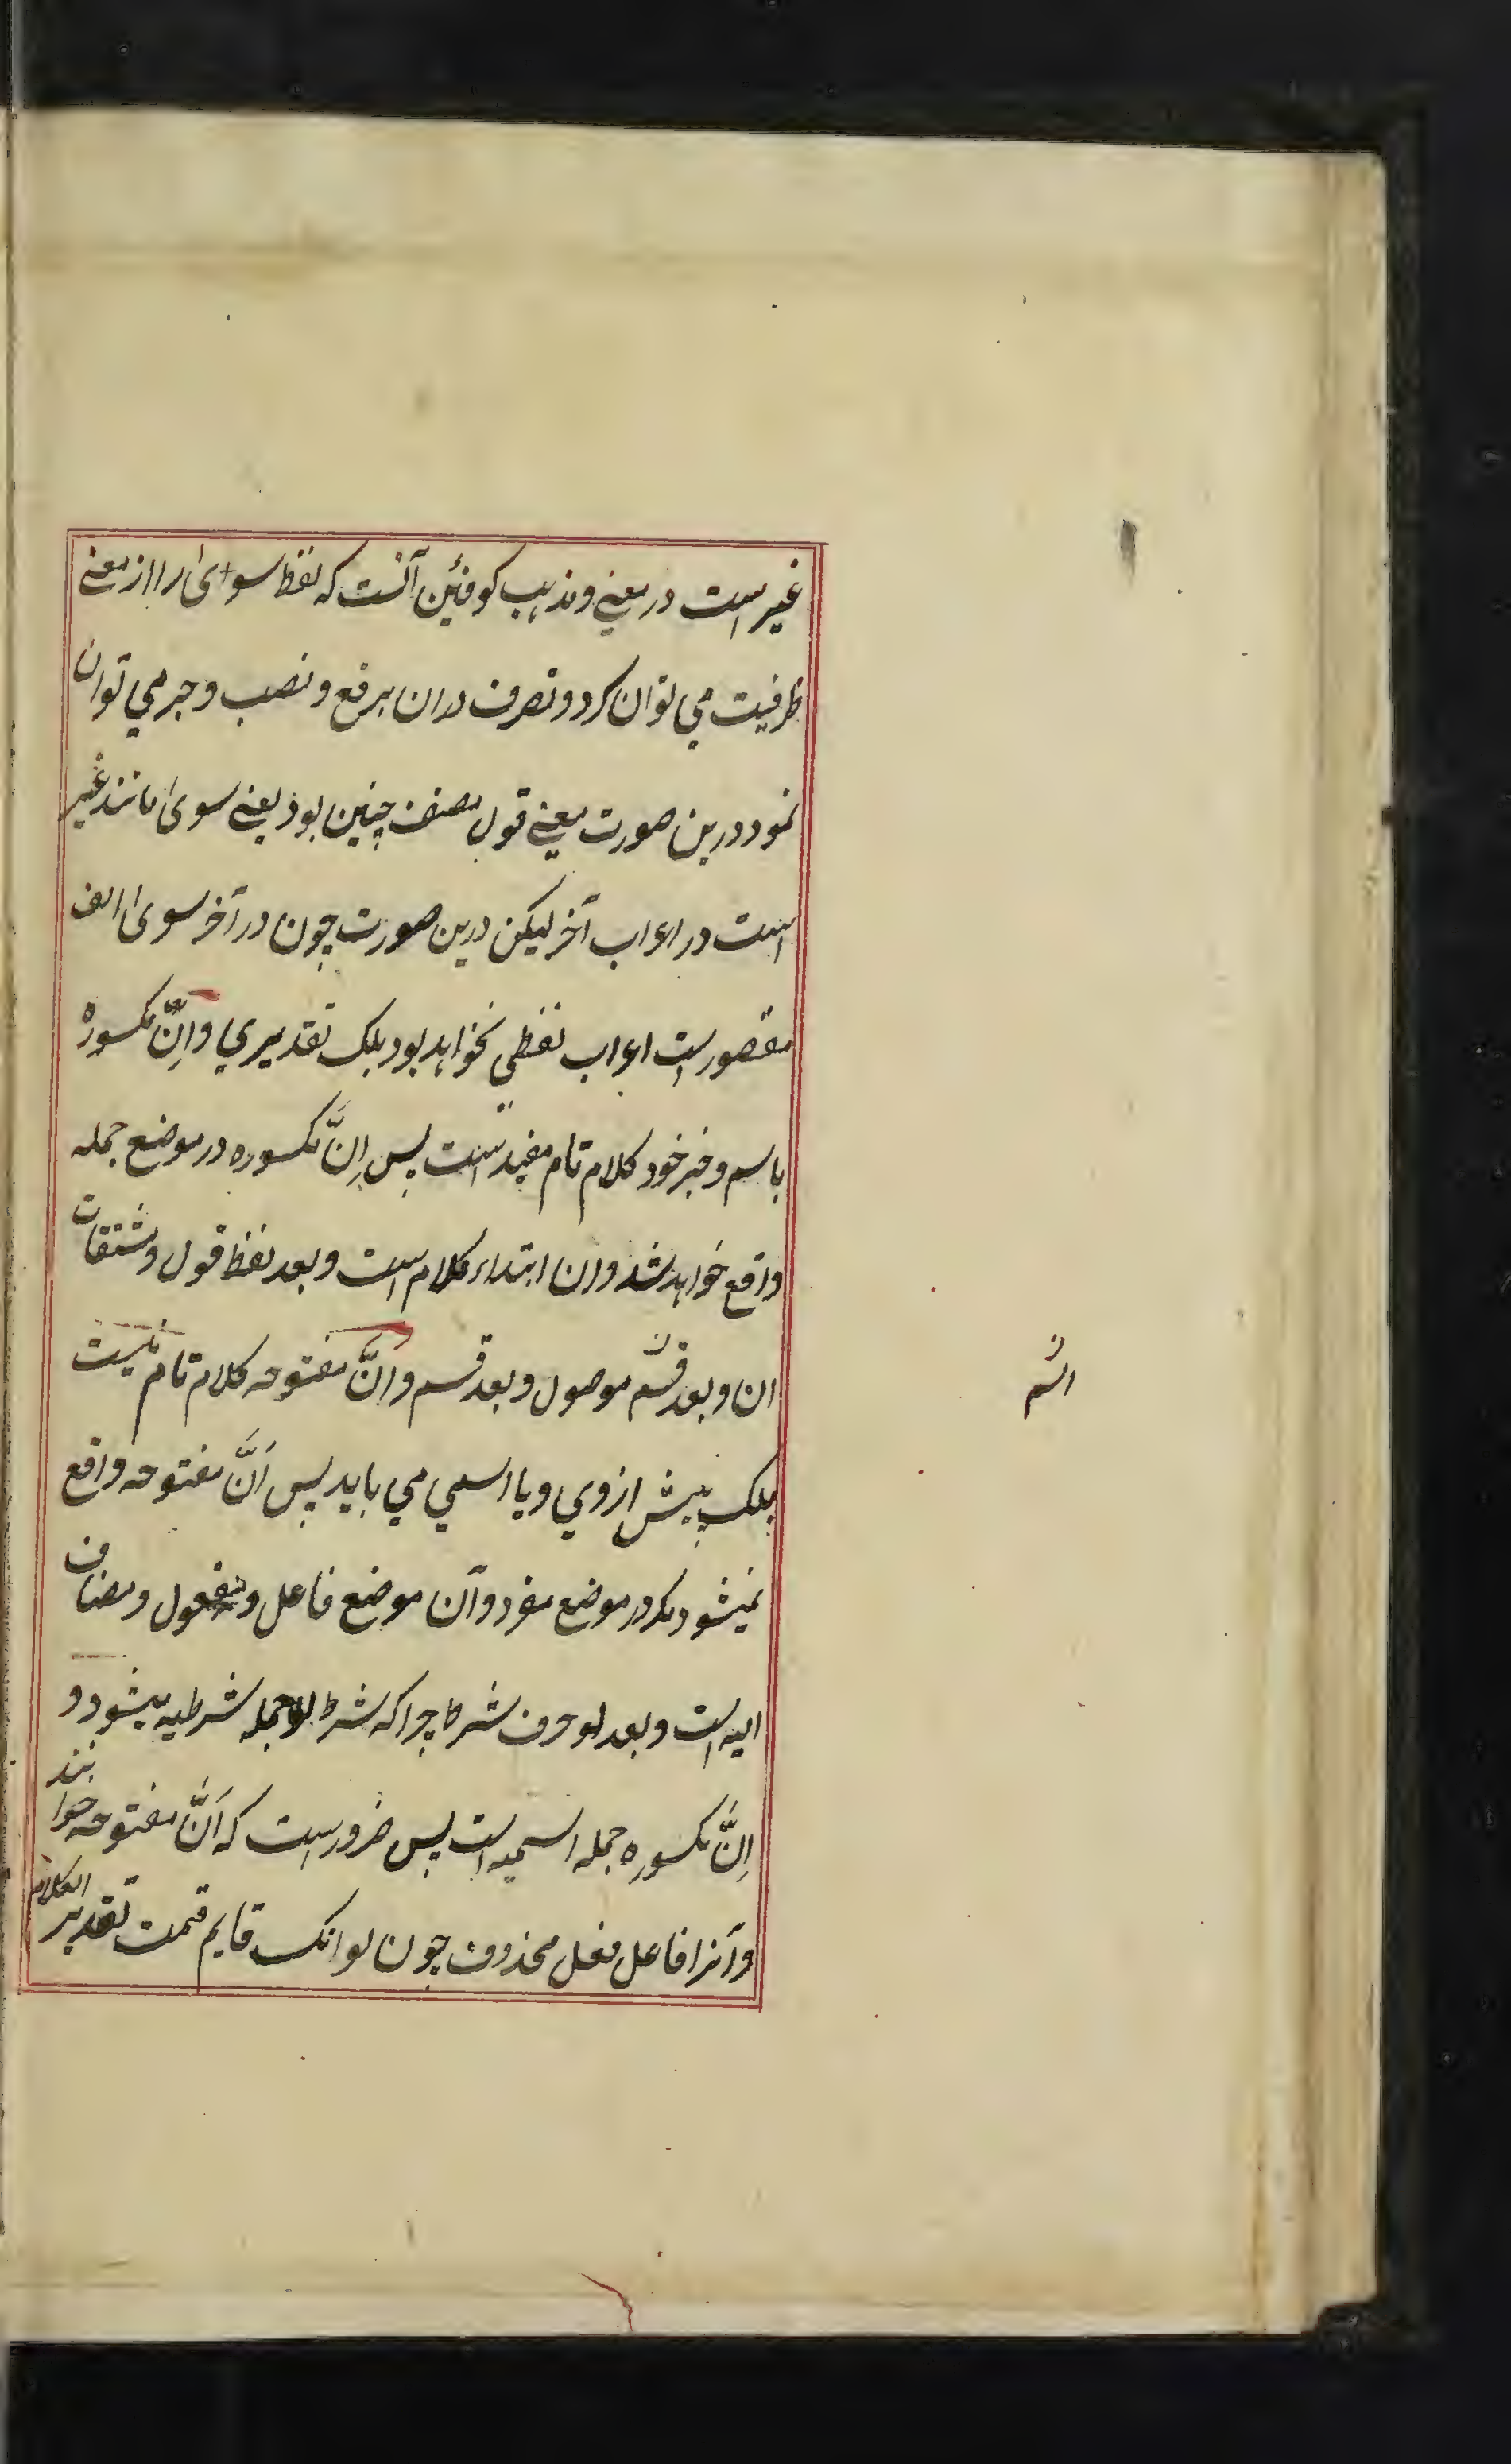 غیر است در معنی و مذهب کوفئین آنست که لفظ سوی را از معنی
ظرفیت می توان کرد و تصرف در ان برفع و نصب و جر می توان
نمود درین صورت معنی قول مصنف چنین بود یعنی سوی مانند غیر
است در اعراب آخر لیکن درین صورت چون در آخر سوی الف
مقصور است اعراب لفظی نخواهد بود بلک تقدیری وانّ مکسوره
باسم و خبر خود کلام تام مفیدست پس اِنَّ مکسوره در موضع جمله
واقع خواهد شد و ان ابتداء کلام است و بعد لفظ قول و مشتقات
ان و بعد قسم موصول و بعد قسم وانَّ مفتوحه کلام تام نیست
بلک پیش از وی و یا اسمی می باید پس اَنَّ مفتوحه واقع
نمیشود مکر در موضع مفرد و آن موضع فاعل و مفعول و مضاف
الیه است و بعد لو حرف شرط چرا که شرط لو جمله شرطیه میشود و
اِنَّ مکسوره جمله اسمیه است پس ضرور است که اَنَّ مفتوحه خوانند
و آنرا فاعل فعل محذوف چون لو انک قایم قمت تقدیر الکلام
اسم